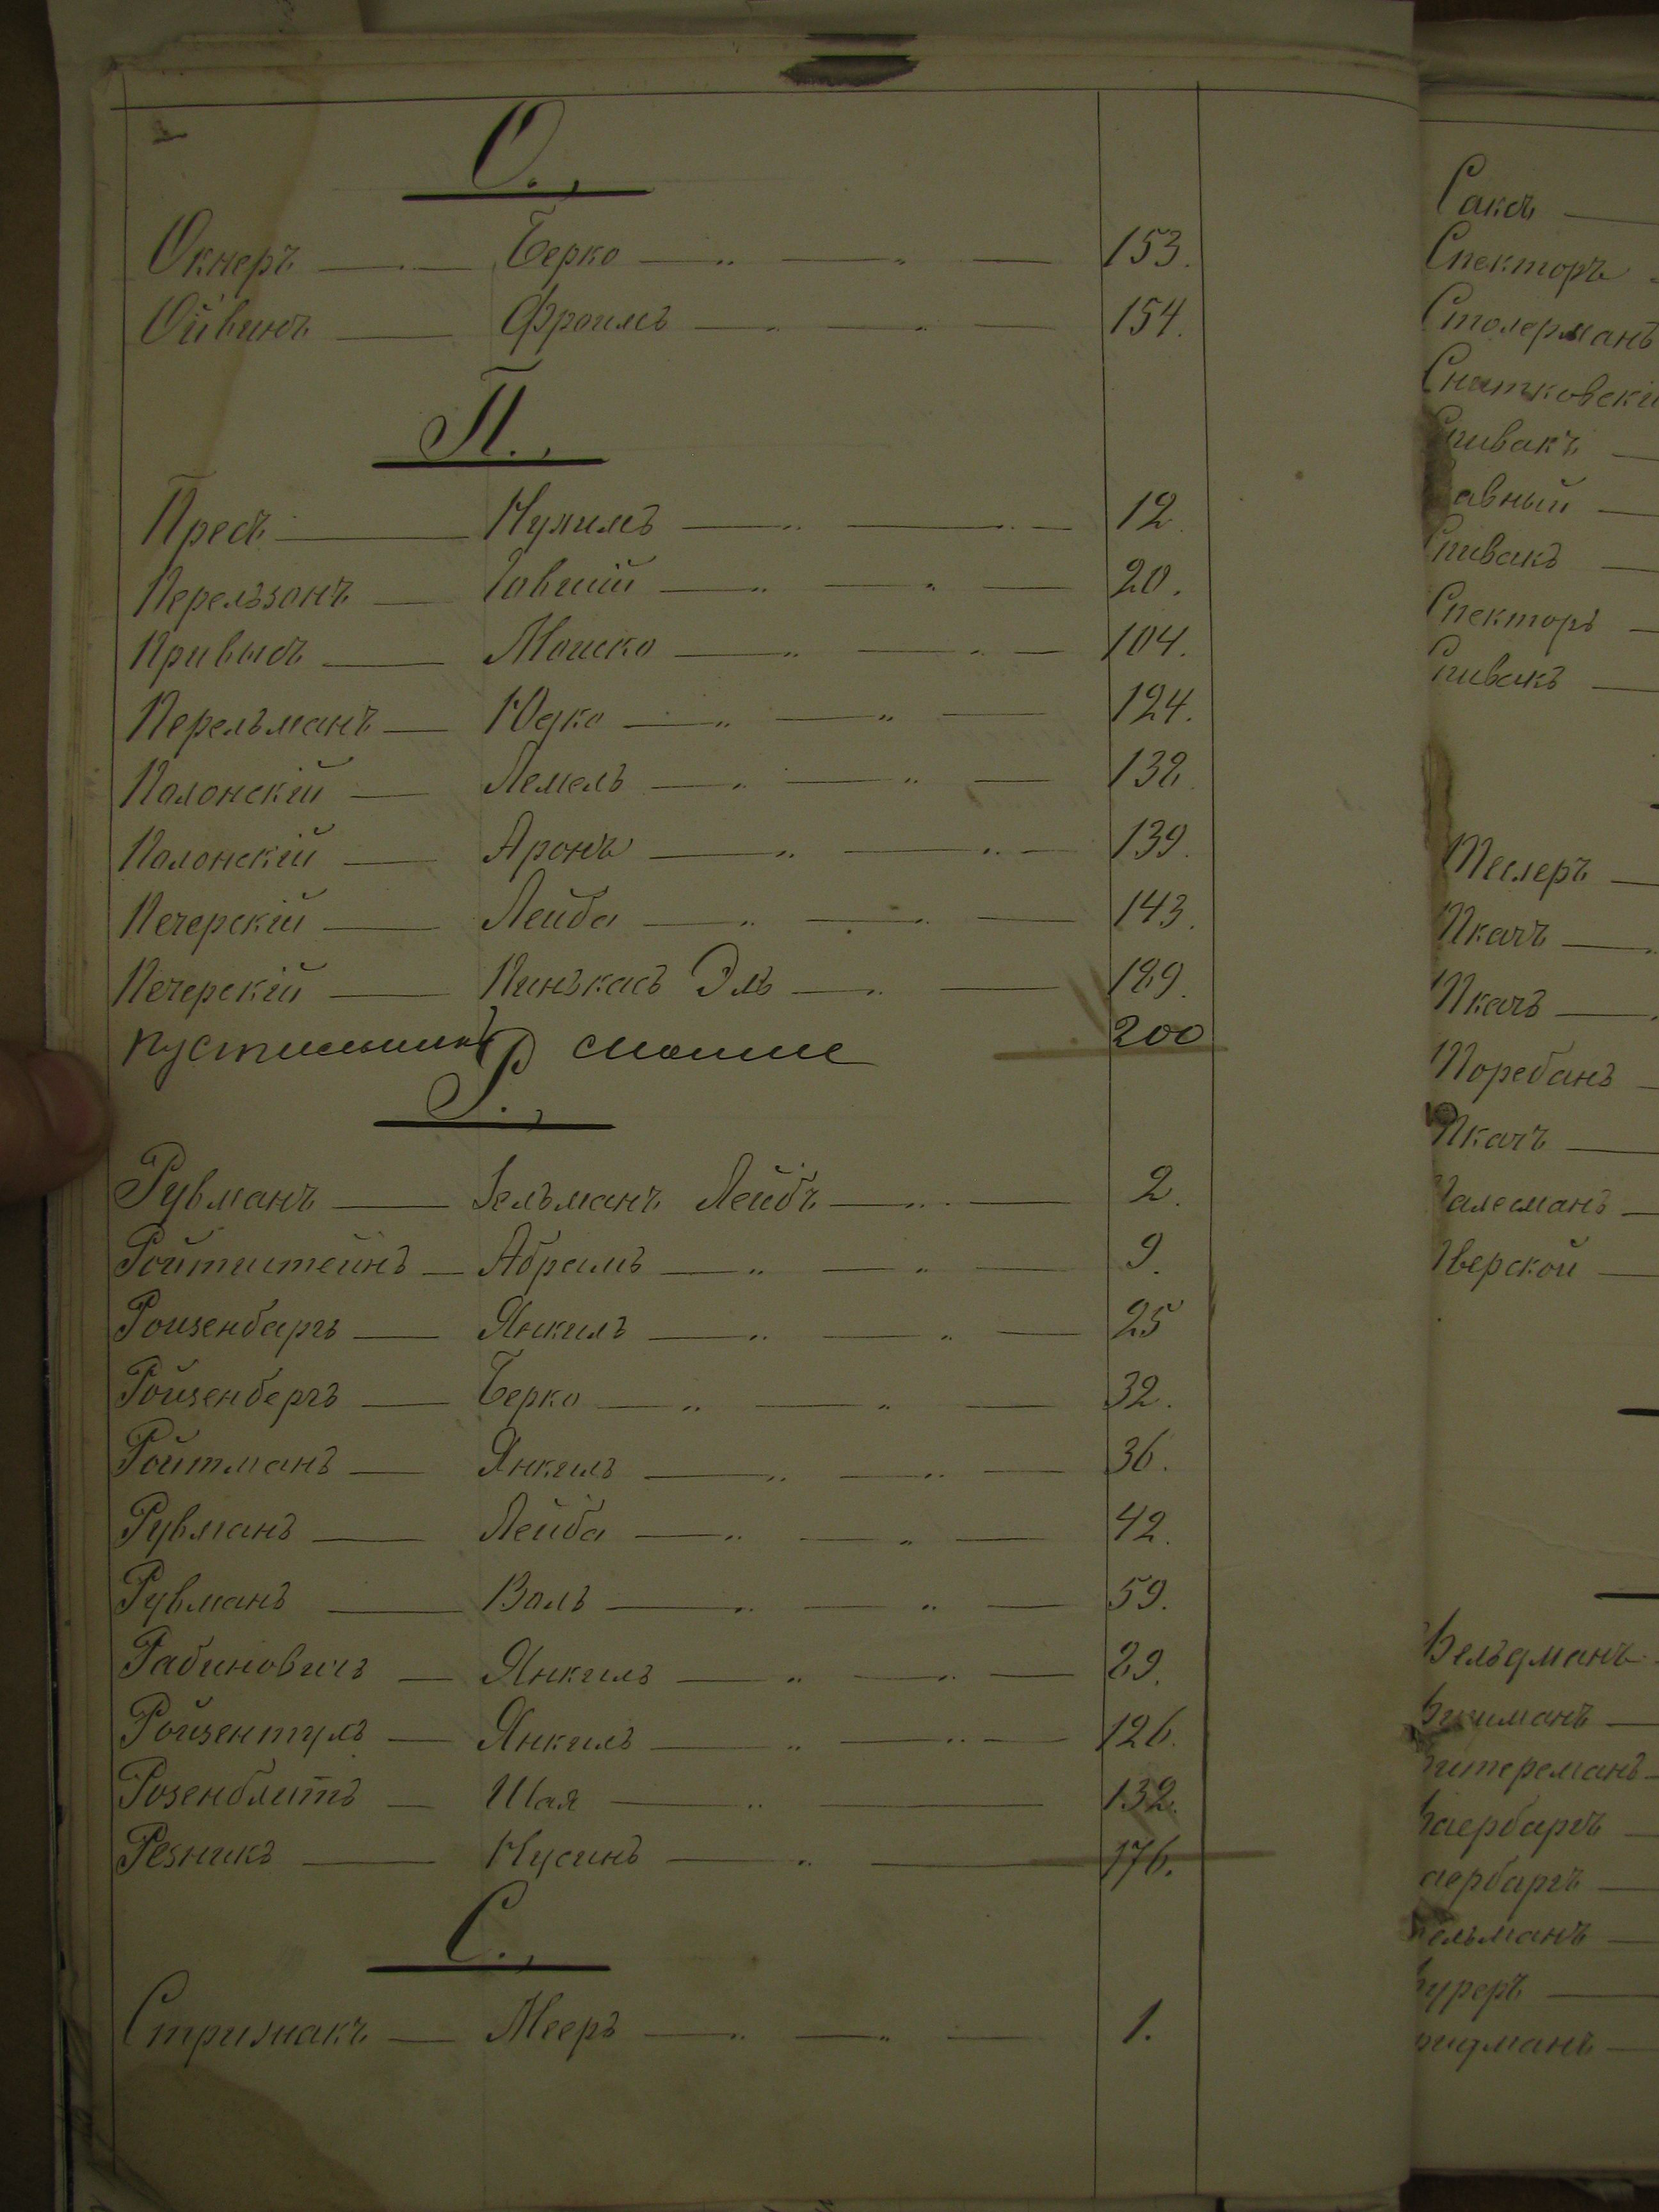 О.,
Окнеръ — Берко — „ — „ — 153.
Ойвинъ — Фроимъ — „ — „ — 154.
П.,
Пресъ — Нухимъ — „ — „ — 12.
Перельзонъ — Іовшій — „ — „ — 20.
Привысъ — Мошко — „ — „ — 104.
Перельманъ — Юдко — „ — „ — 124.
Полонскій — Лемель — „ — „ — 132.
Полонскій — Аронъ — „ — „ — 139.
Печерскій — Лейба — „ — „ — 143.
Печерскій — Пинькасъ Эль — „ — 189.
200
Р.,
Рувманъ — Зельманъ Лейбъ — „ — 2.
Ройтштейнъ — Абрамъ — „ — „ — 9.
Ройзенбаргъ — Янкиль — „ — „ — 25
Ройзенбергъ — Берко — „ — „ — 32.
Ройтманъ — Янкиль — „ — „ — 36.
Рувманъ — Лейба — „ — „ — 42.
Рувманъ — Воль — „ — „ — 59.
Рабиновичъ — Янкиль — „ — „ — 29.
Ройзентулъ — Янкиль — „ — „ — 126.
Розенблитъ — Шая — „ — 132.
Резникъ — Нусинъ — „ — 176.
С.,
Стрижакъ — Мееръ — „ — „ — 1.
Саксъ —
Спекторъ
Столерманъ
Снитковскі
Спивакъ —
авный —
Спивакъ —
Спекторъ —
Спивакъ —
Теслеръ —
Ткачъ —
Ткачъ —
Торебанъ —
Ткачъ —
Талесманъ —
Тверской —
Фельдманъ
итерманъ
аербаргъ —
аербаргъ —
ельманъ —
уреръ —
идманъ —